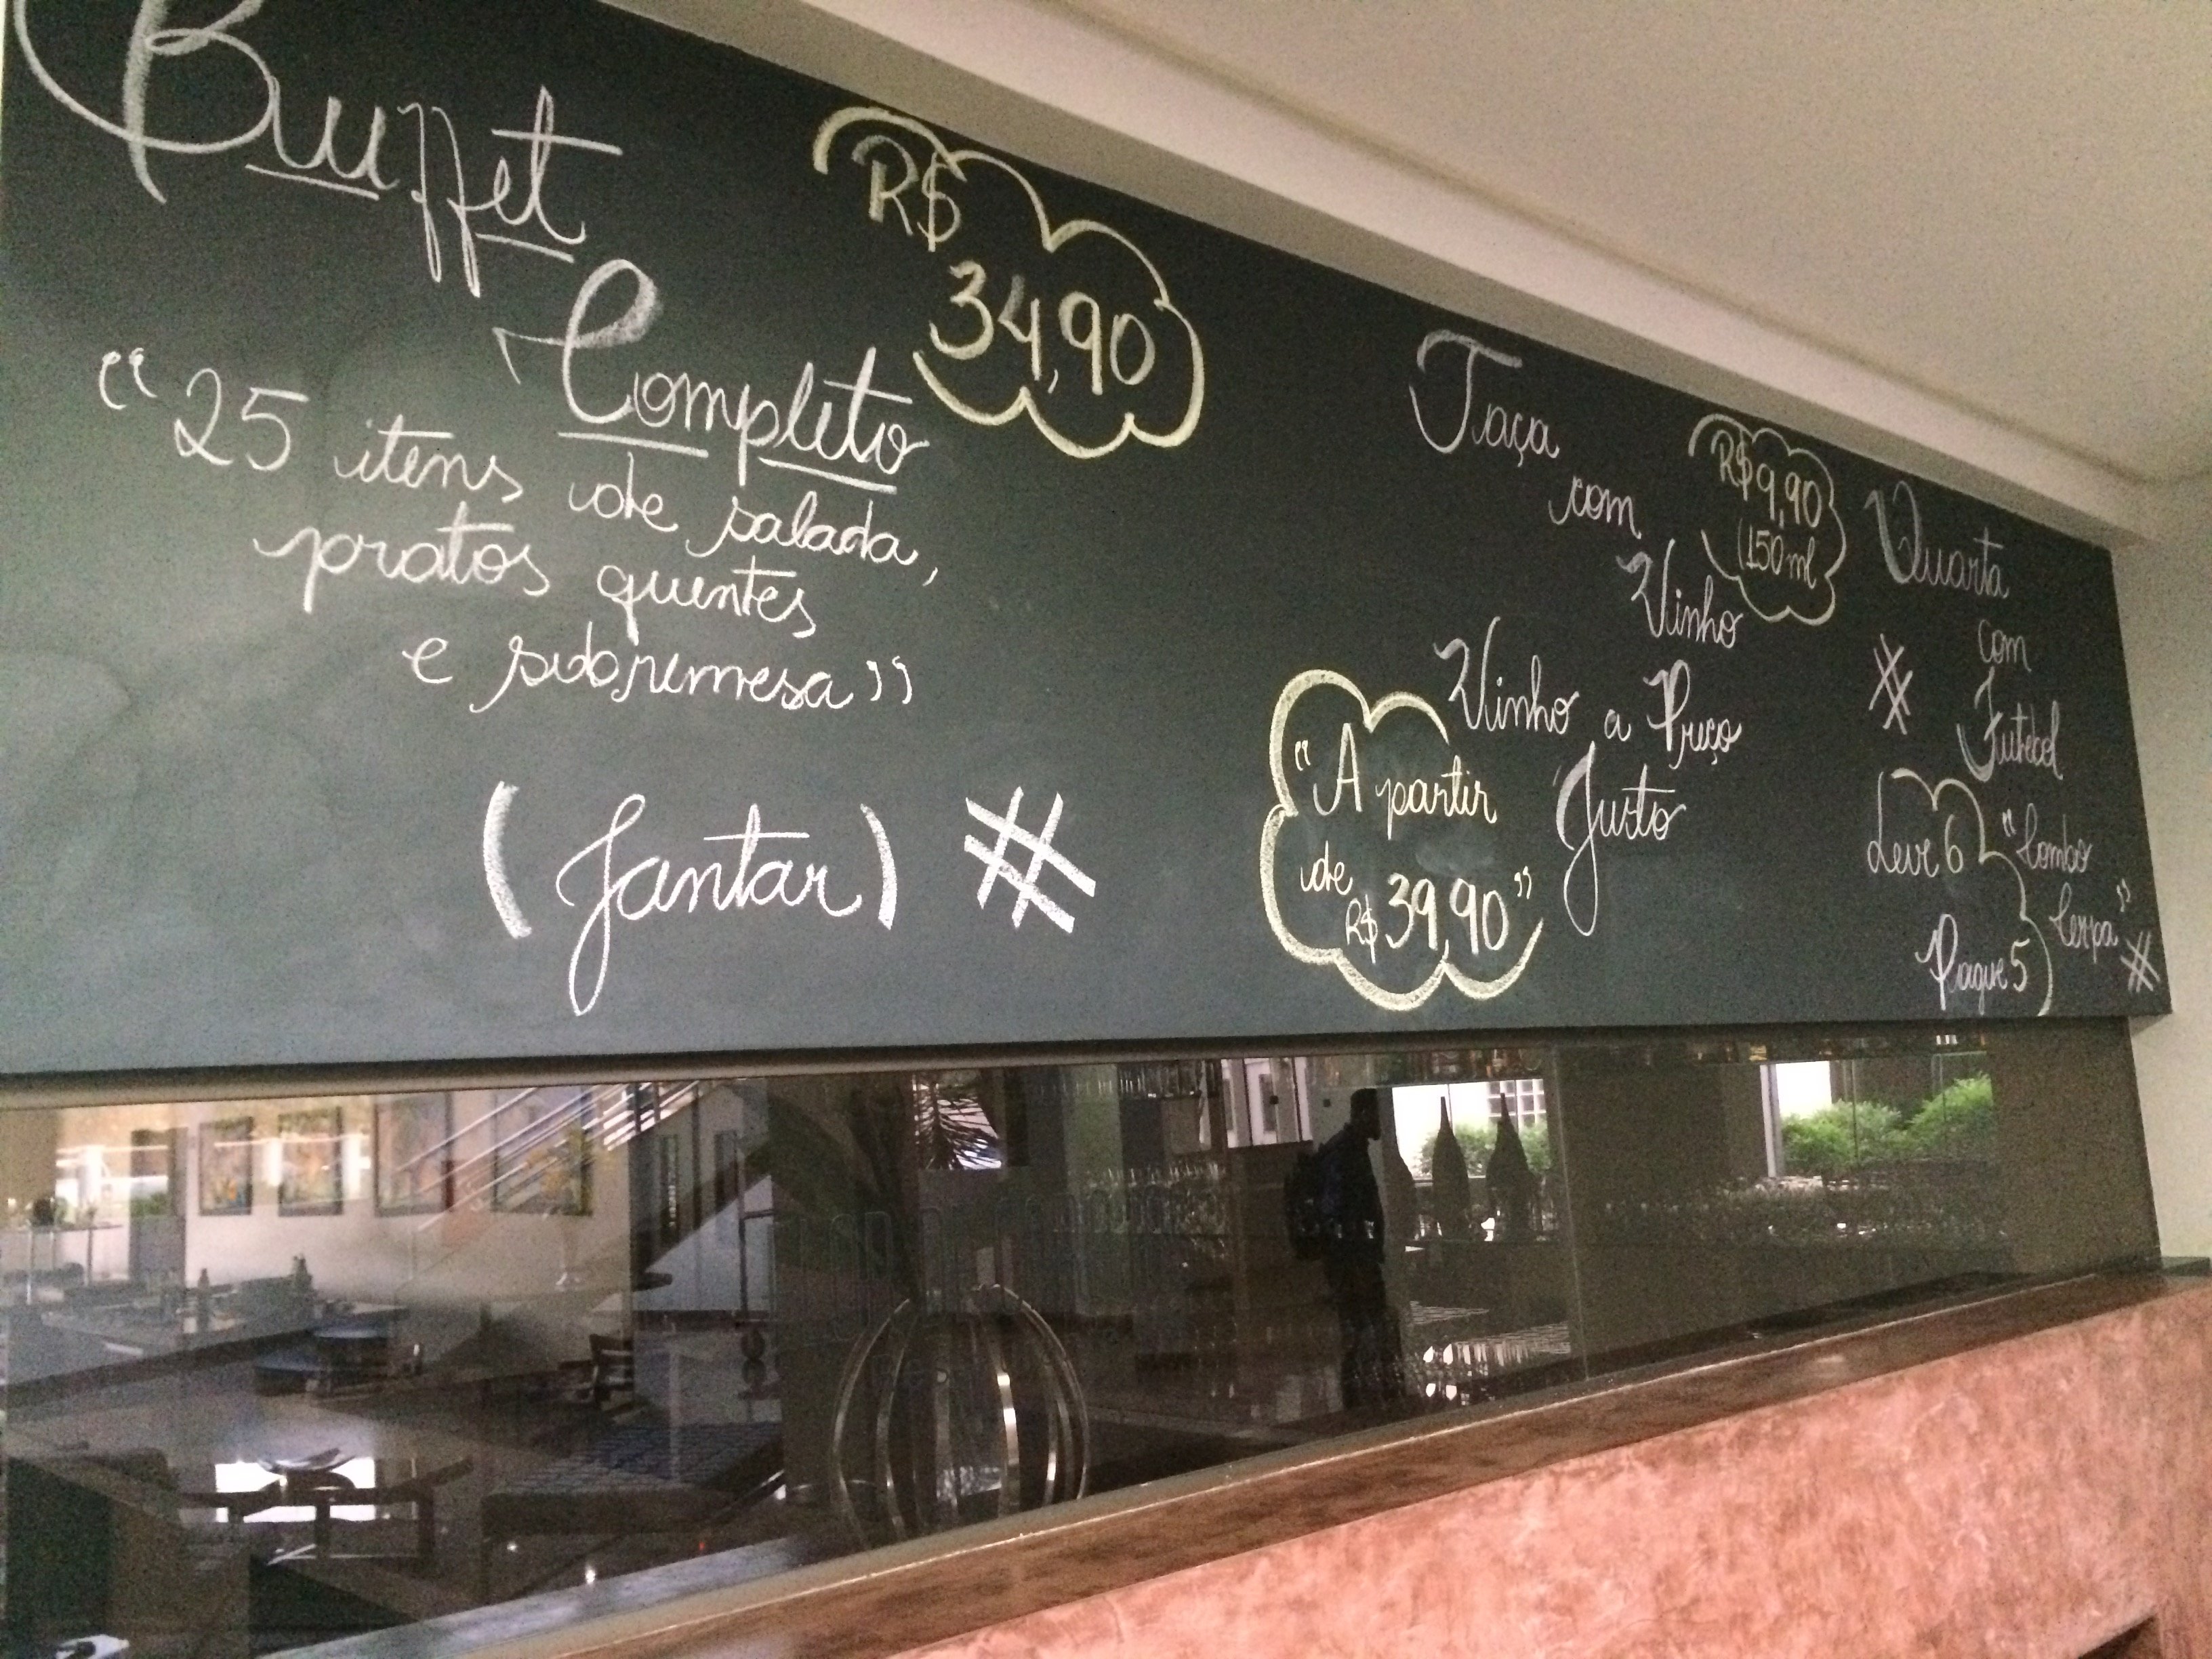 Buffet
Completo
R$
34,90
“25 itens de salada,
pratos quentes
e sobremesa”
(Jantar) #
Taça
com
Vinho
R$ 9,90
(150 ml
Vinho a Preço
Justo
“A partir
de
R$ 39,90”
Quarta
#
com
Futebol
Leve 6
Pague 5
“Combo
Cerpa”
#